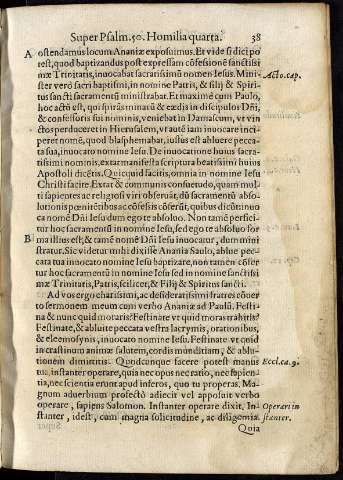 Super Psalm. 50. Homilia quarta. 38
A ostendamus locum Ananiæ exposuimus. Et vide si dici po
test, quod baptizandus post expressam cõfessionẽ sanctissi
mæ Trinitatis, inuocabat sacrarissimũ nomen Iesus. Mini- Acto. cap.
ster verò sacri baptismi, in nomine Patris, & Filij & Spiri
tus sancti sacramentũ ministrabat. Et maximè cum Paulo,
hoc actũ est, qui spirãs minarũ & cædis in discipulos Dñi,
& confessoris sui nominis, veniebat in Damascum, vt vin
ctos perduceret in Hierusalem, vt autẽ iam inuocare inci-
peret nomẽ, quod blasphemabat, iussus est abluere pecca-
ta sua, inuocato nomine Iesu. De inuocatione huius sacra-
tissimi nominis, extat manifesta scriptura beatissimi huius
Apostoli dicẽtis. Quicquid facitis, omnia in nomine Iesu
Christi facite. Extat & communis consuetudo, quam mul-
ti sapientes ac religiosi viri obseruãt, dũ sacramentũ abso-
lutionis pœnitẽtibus ac cõfessis cõferũt, quibus dicũt inuo
ca nomẽ Dñi Iesu dum ego te absoluo. Non tamẽ persici-
tur hoc sacramentũ in nomine Iesu, sed ego te absoluo for
B ma illius est, & tamẽ nomẽ Dñi Iesu inuocatur, dum mini
stratur. Sic videtur mihi dixisse Anania Saulo, ablue pec-
cata tua inuocato nomine Iesu baptizare, non tamen cõfer
tur hoc sacramentũ in nomine Iesu sed in nomine sanctissi
mæ Trinitatis, Patris, scilicet, & Filij & Spiritus sancti.
Ad vos ergo charissimi, ac desideratissimi fratres cõuer
to sermonem meum cum verbo Ananiæ ad Paulũ. Festi-
na & nunc quid moraris? Festinate vt quid moras trahitis?
Festinate, & abluite peccata vestra lacrymis, orationibus,
& eleemosynis, inuocato nomine Iesu. Festinate vt quid
in crastinum animæ salutem, cordis munditiem, & ablu-
tionem dimittitis. Quodcunque facere potest manus Eccl. ca. 9.
tua, instanter operare, quia nec opus nec ratio, nec sapien-
tia, nec scientia erunt apud inferos, quo tu properas. Ma-
gnum aduerbium profectò adiecit vel apposuit verbo
operare, sapiens Salomon. Instanter operare dixit. In- Operari in
stanter, idest, cum magna solicitudine, ac diligentia stanter.
Quia